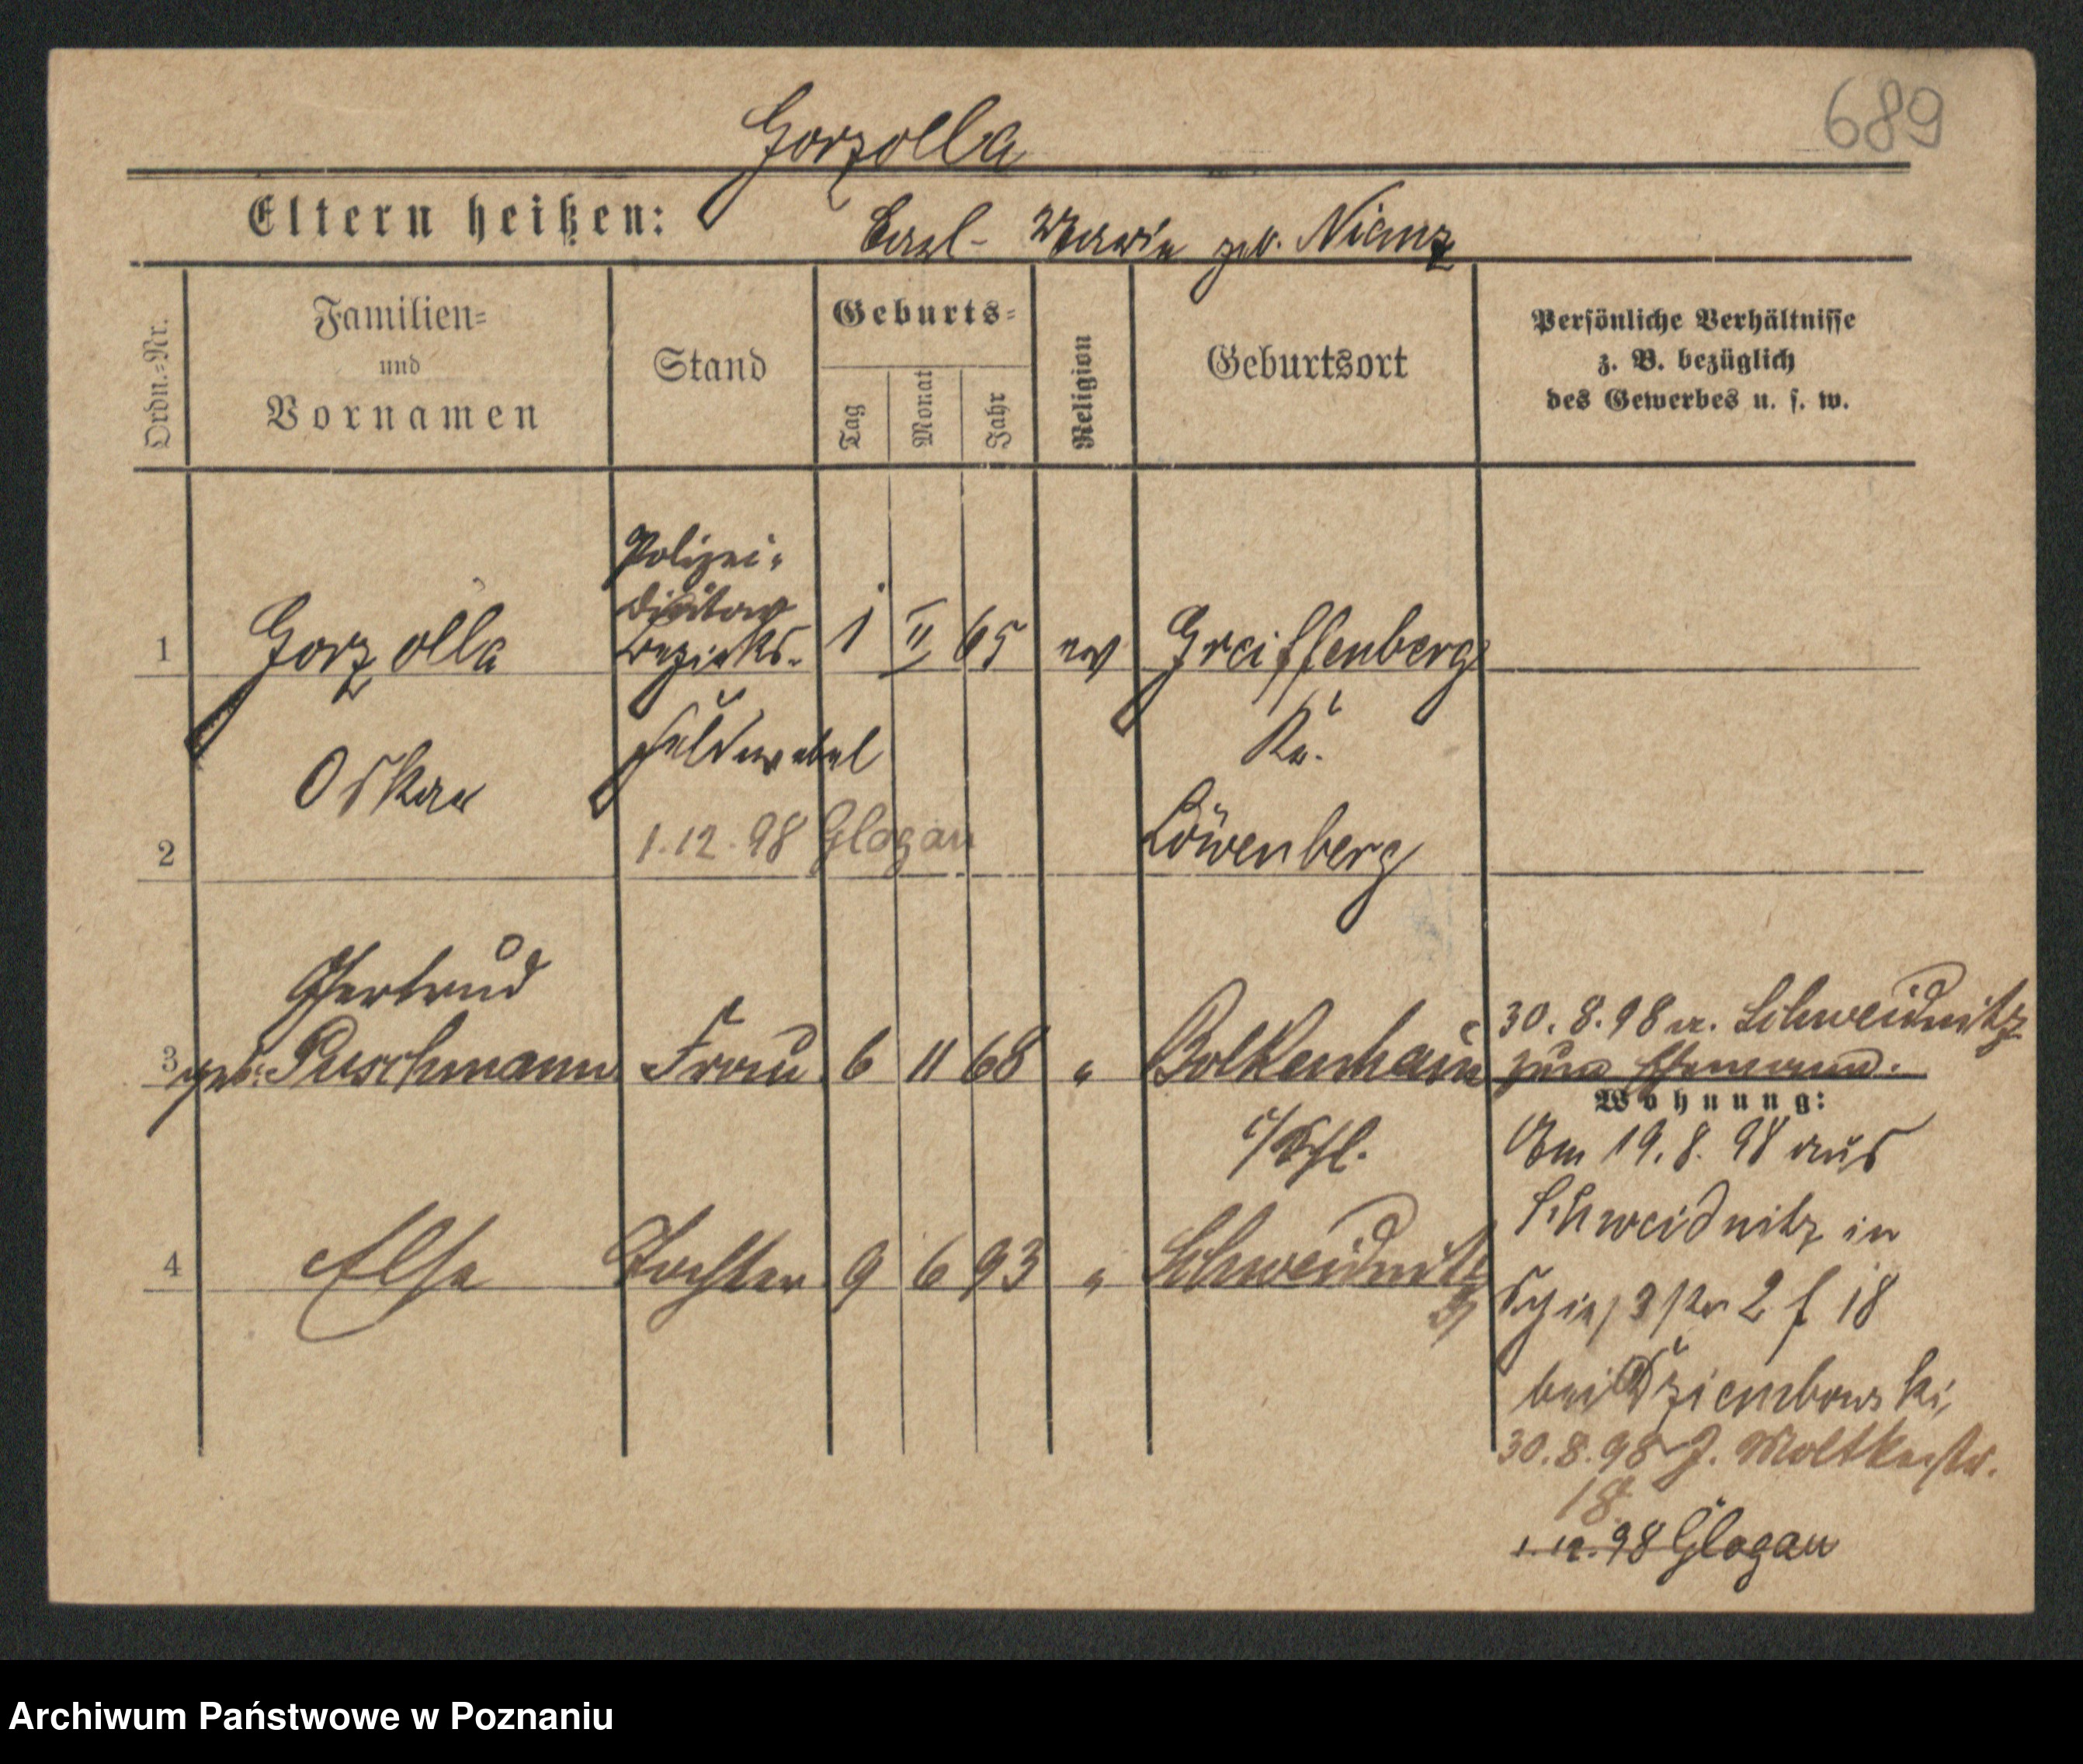 689
Gorzolla
Eltern heißen: Carl - Maria geb.
Ordn.=Nr.
Familien=
und
Vornamen
Stand
Geburts=
Tag
Monat
Jahr
Religion
Geburtsort
Persönliche Verhältnisse
z. B. bezüglich
des Gewerbes u. s. w.
1 Gorzolla
Polizei=
Bezirks=
Feldwebel
1 II 65 ev Greiffenberg
Kr.
Löwenberg
Oskar
2
1.12.98 Glogau
Gertrud
3 geb. Puschmann Frau 6 11 68 " Bolkenhain
i/Schl.
30.8.98 n. Schweidnitz
zum Ehemann.
4 Else Tochter 9 6 93 " Schweidnitz
Wohnung:
Am 19.8.98 aus
Schweidnitz in
2 f 18
bei Dziembowski
30.8.98 J. Moltkestr.
18.
1.12.98 Glogau
Archiwum Państwowe w Poznaniu